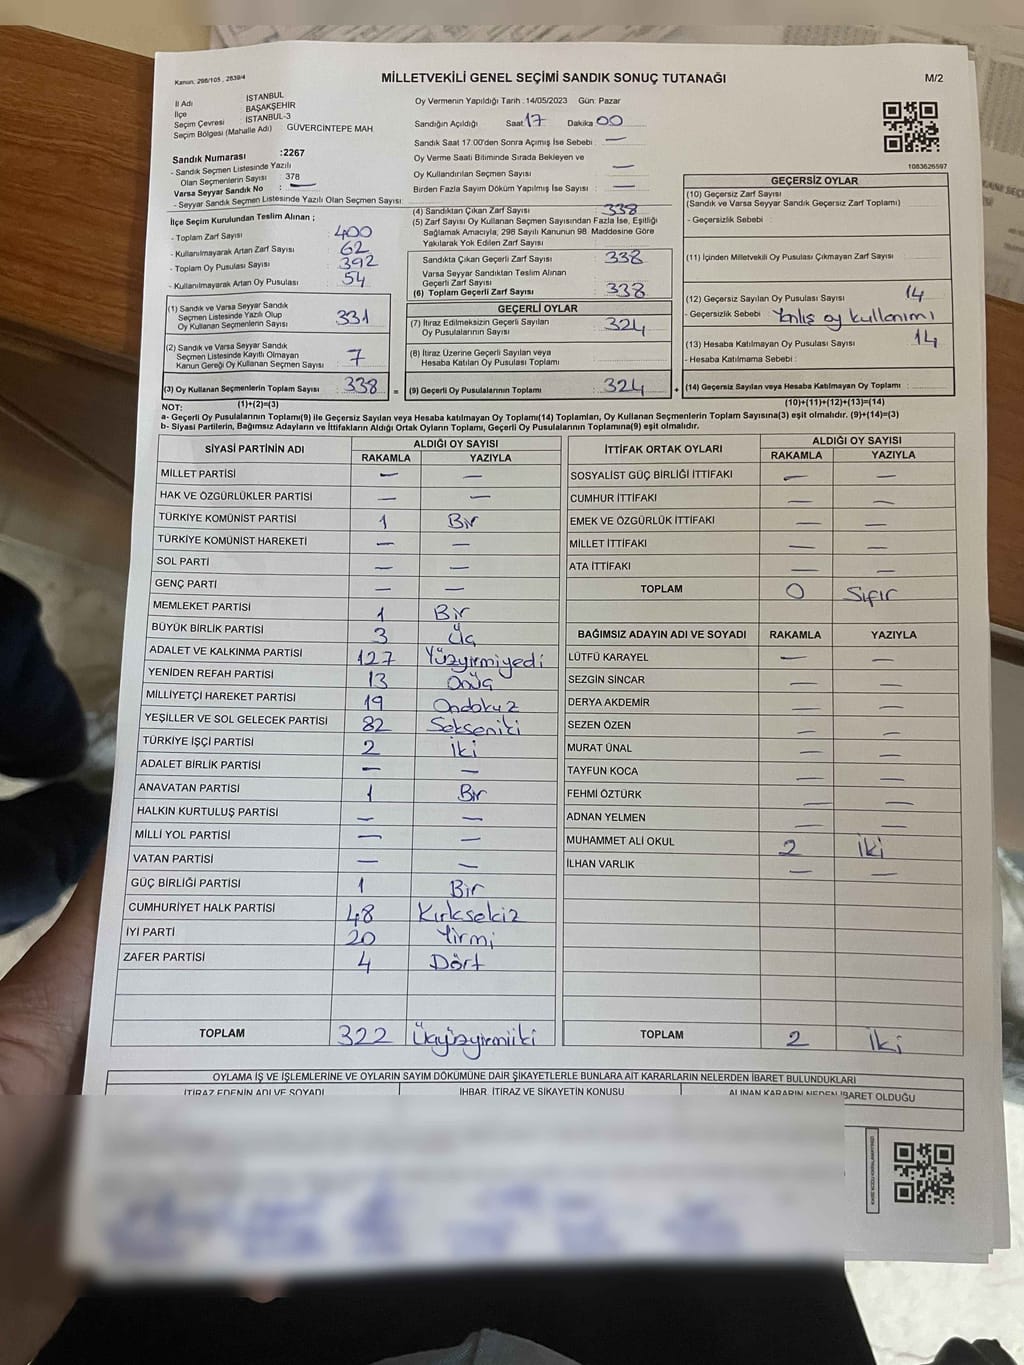 Kanun, 298/105 , 2839/4
MİLLETVEKİLİ GENEL SEÇİMİ SANDIK SONUÇ TUTANAĞI
M/2
İl Adı : İSTANBUL
İlçe : BAŞAKŞEHİR
Seçim Çevresi : İSTANBUL-3
Seçim Bölgesi (Mahalle Adı) : GÜVERCİNTEPE MAH.
Sandık Numarası :2267
- Sandık Seçmen Listesinde Yazılı
Olan Seçmenlerin Sayısı : 378
Varsa Seyyar Sandık No : —
- Seyyar Sandık Seçmen Listesinde Yazılı Olan Seçmen Sayısı:
Oy Vermenin Yapıldığı Tarih :14/05/2023 Gün: Pazar
Sandığın Açıldığı Saat 17 Dakika 00
Sandık Saat 17:00'den Sonra Açımış İse Sebebi : —
Oy Verme Saati Bitiminde Sırada Bekleyen ve
Oy Kullandırılan Seçmen Sayısı : —
Birden Fazla Sayım Döküm Yapılmış İse Sayısı : —
1083626597
İlçe Seçim Kurulundan Teslim Alınan ;
- Toplam Zarf Sayısı : 400
- Kullanılmayarak Artan Zarf Sayısı : 62
- Toplam Oy Pusulası Sayısı : 392
- Kullanılmayarak Artan Oy Pusulası : 54
(1) Sandık ve Varsa Seyyar Sandık
Seçmen Listesinde Yazılı Olup
Oy Kullanan Seçmenlerin Sayısı : 331
(2) Sandık ve Varsa Seyyar Sandık
Seçmen Listesinde Kayıtlı Olmayan
Kanun Gereği Oy Kullanan Seçmen Sayısı : 7
(3) Oy Kullanan Seçmenlerin Toplam Sayısı : 338
(1)+(2)=(3)
(4) Sandıktan Çıkan Zarf Sayısı : 338
(5) Zarf Sayısı Oy Kullanan Seçmen Sayısından Fazla İse, Eşitliği
Sağlamak Amacıyla, 298 Sayılı Kanunun 98. Maddesine Göre
Yakılarak Yok Edilen Zarf Sayısı :
Sandıkta Çıkan Geçerli Zarf Sayısı : 338
Varsa Seyyar Sandıktan Teslim Alınan
Geçerli Zarf Sayısı :
(6) Toplam Geçerli Zarf Sayısı : 338
GEÇERLİ OYLAR
(7) İtiraz Edilmeksizin Geçerli Sayılan
Oy Pusulalarının Sayısı : 324
(8) İtiraz Üzerine Geçerli Sayılan veya
Hesaba Katılan Oy Pusulası Toplamı :
= (9) Geçerli Oy Pusulalarının Toplamı : 324 +
GEÇERSİZ OYLAR
(10) Geçersiz Zarf Sayısı
(Sandık ve Varsa Seyyar Sandık Geçersiz Zarf Toplamı)
- Geçersizlik Sebebi :
(11) İçinden Milletvekili Oy Pusulası Çıkmayan Zarf Sayısı :
(12) Geçersiz Sayılan Oy Pusulası Sayısı : 14
- Geçersizlik Sebebi : Yanlış oy kullanımı
(13) Hesaba Katılmayan Oy Pusulası Sayısı : 14
- Hesaba Katılmama Sebebi :
(14) Geçersiz Sayılan veya Hesaba Katılmayan Oy Toplamı :
(10)+(11)+(12)+(13)=(14)
NOT:
a- Geçerli Oy Pusulalarının Toplamı(9) ile Geçersiz Sayılan veya Hesaba katılmayan Oy Toplamı(14) Toplamları, Oy Kullanan Seçmenlerin Toplam Sayısına(3) eşit olmalıdır. (9)+(14)=(3)
b- Siyasi Partilerin, Bağımsız Adayların ve İttifakların Aldığı Ortak Oyların Toplamı, Geçerli Oy Pusulalarının Toplamına(9) eşit olmalıdır.
SİYASİ PARTİNİN ADI ALDIĞI OY SAYISI
RAKAMLA YAZIYLA
MİLLET PARTİSİ — —
HAK VE ÖZGÜRLÜKLER PARTİSİ — —
TÜRKİYE KOMÜNİST PARTİSİ 1 Bir
TÜRKİYE KOMÜNİST HAREKETİ — —
SOL PARTİ — —
GENÇ PARTİ — —
MEMLEKET PARTİSİ 1 Bir
BÜYÜK BİRLİK PARTİSİ 3 Üç
ADALET VE KALKINMA PARTİSİ 127 Yüzyirmiyedi
YENİDEN REFAH PARTİSİ 13 Onüç
MİLLİYETÇİ HAREKET PARTİSİ 19 Ondokuz
YEŞİLLER VE SOL GELECEK PARTİSİ 82 Sekseniki
TÜRKİYE İŞÇİ PARTİSİ 2 İki
ADALET BİRLİK PARTİSİ — —
ANAVATAN PARTİSİ 1 Bir
HALKIN KURTULUŞ PARTİSİ — —
MİLLİ YOL PARTİSİ — —
VATAN PARTİSİ — —
GÜÇ BİRLİĞİ PARTİSİ 1 Bir
CUMHURİYET HALK PARTİSİ 48 Kırksekiz
İYİ PARTİ 20 Yirmi
ZAFER PARTİSİ 4 Dört
TOPLAM 322 Üçyüzyirmiiki
İTTİFAK ORTAK OYLARI ALDIĞI OY SAYISI
RAKAMLA YAZIYLA
SOSYALİST GÜÇ BİRLİĞİ İTTİFAKI — —
CUMHUR İTTİFAKI — —
EMEK VE ÖZGÜRLÜK İTTİFAKI — —
MİLLET İTTİFAKI — —
ATA İTTİFAKI — —
TOPLAM 0 Sıfır
BAĞIMSIZ ADAYIN ADI VE SOYADI RAKAMLA YAZIYLA
LÜTFÜ KARAYEL — —
SEZGİN SİNCAR — —
DERYA AKDEMİR — —
SEZEN ÖZEN — —
MURAT ÜNAL — —
TAYFUN KOCA — —
FEHMİ ÖZTÜRK — —
ADNAN YELMEN — —
MUHAMMET ALİ OKUL 2 İki
İLHAN VARLIK — —
TOPLAM 2 İki
OYLAMA İŞ VE İŞLEMLERİNE VE OYLARIN SAYIM DÖKÜMÜNE DAİR ŞİKAYETLERLE BUNLARA AİT KARARLARIN NELERDEN İBARET BULUNDUKLARI
İTİRAZ EDENİN ADI VE SOYADI İHBAR, İTİRAZ VE ŞİKAYETİN KONUSU ALINAN KARARIN NEDEN İBARET OLDUĞU